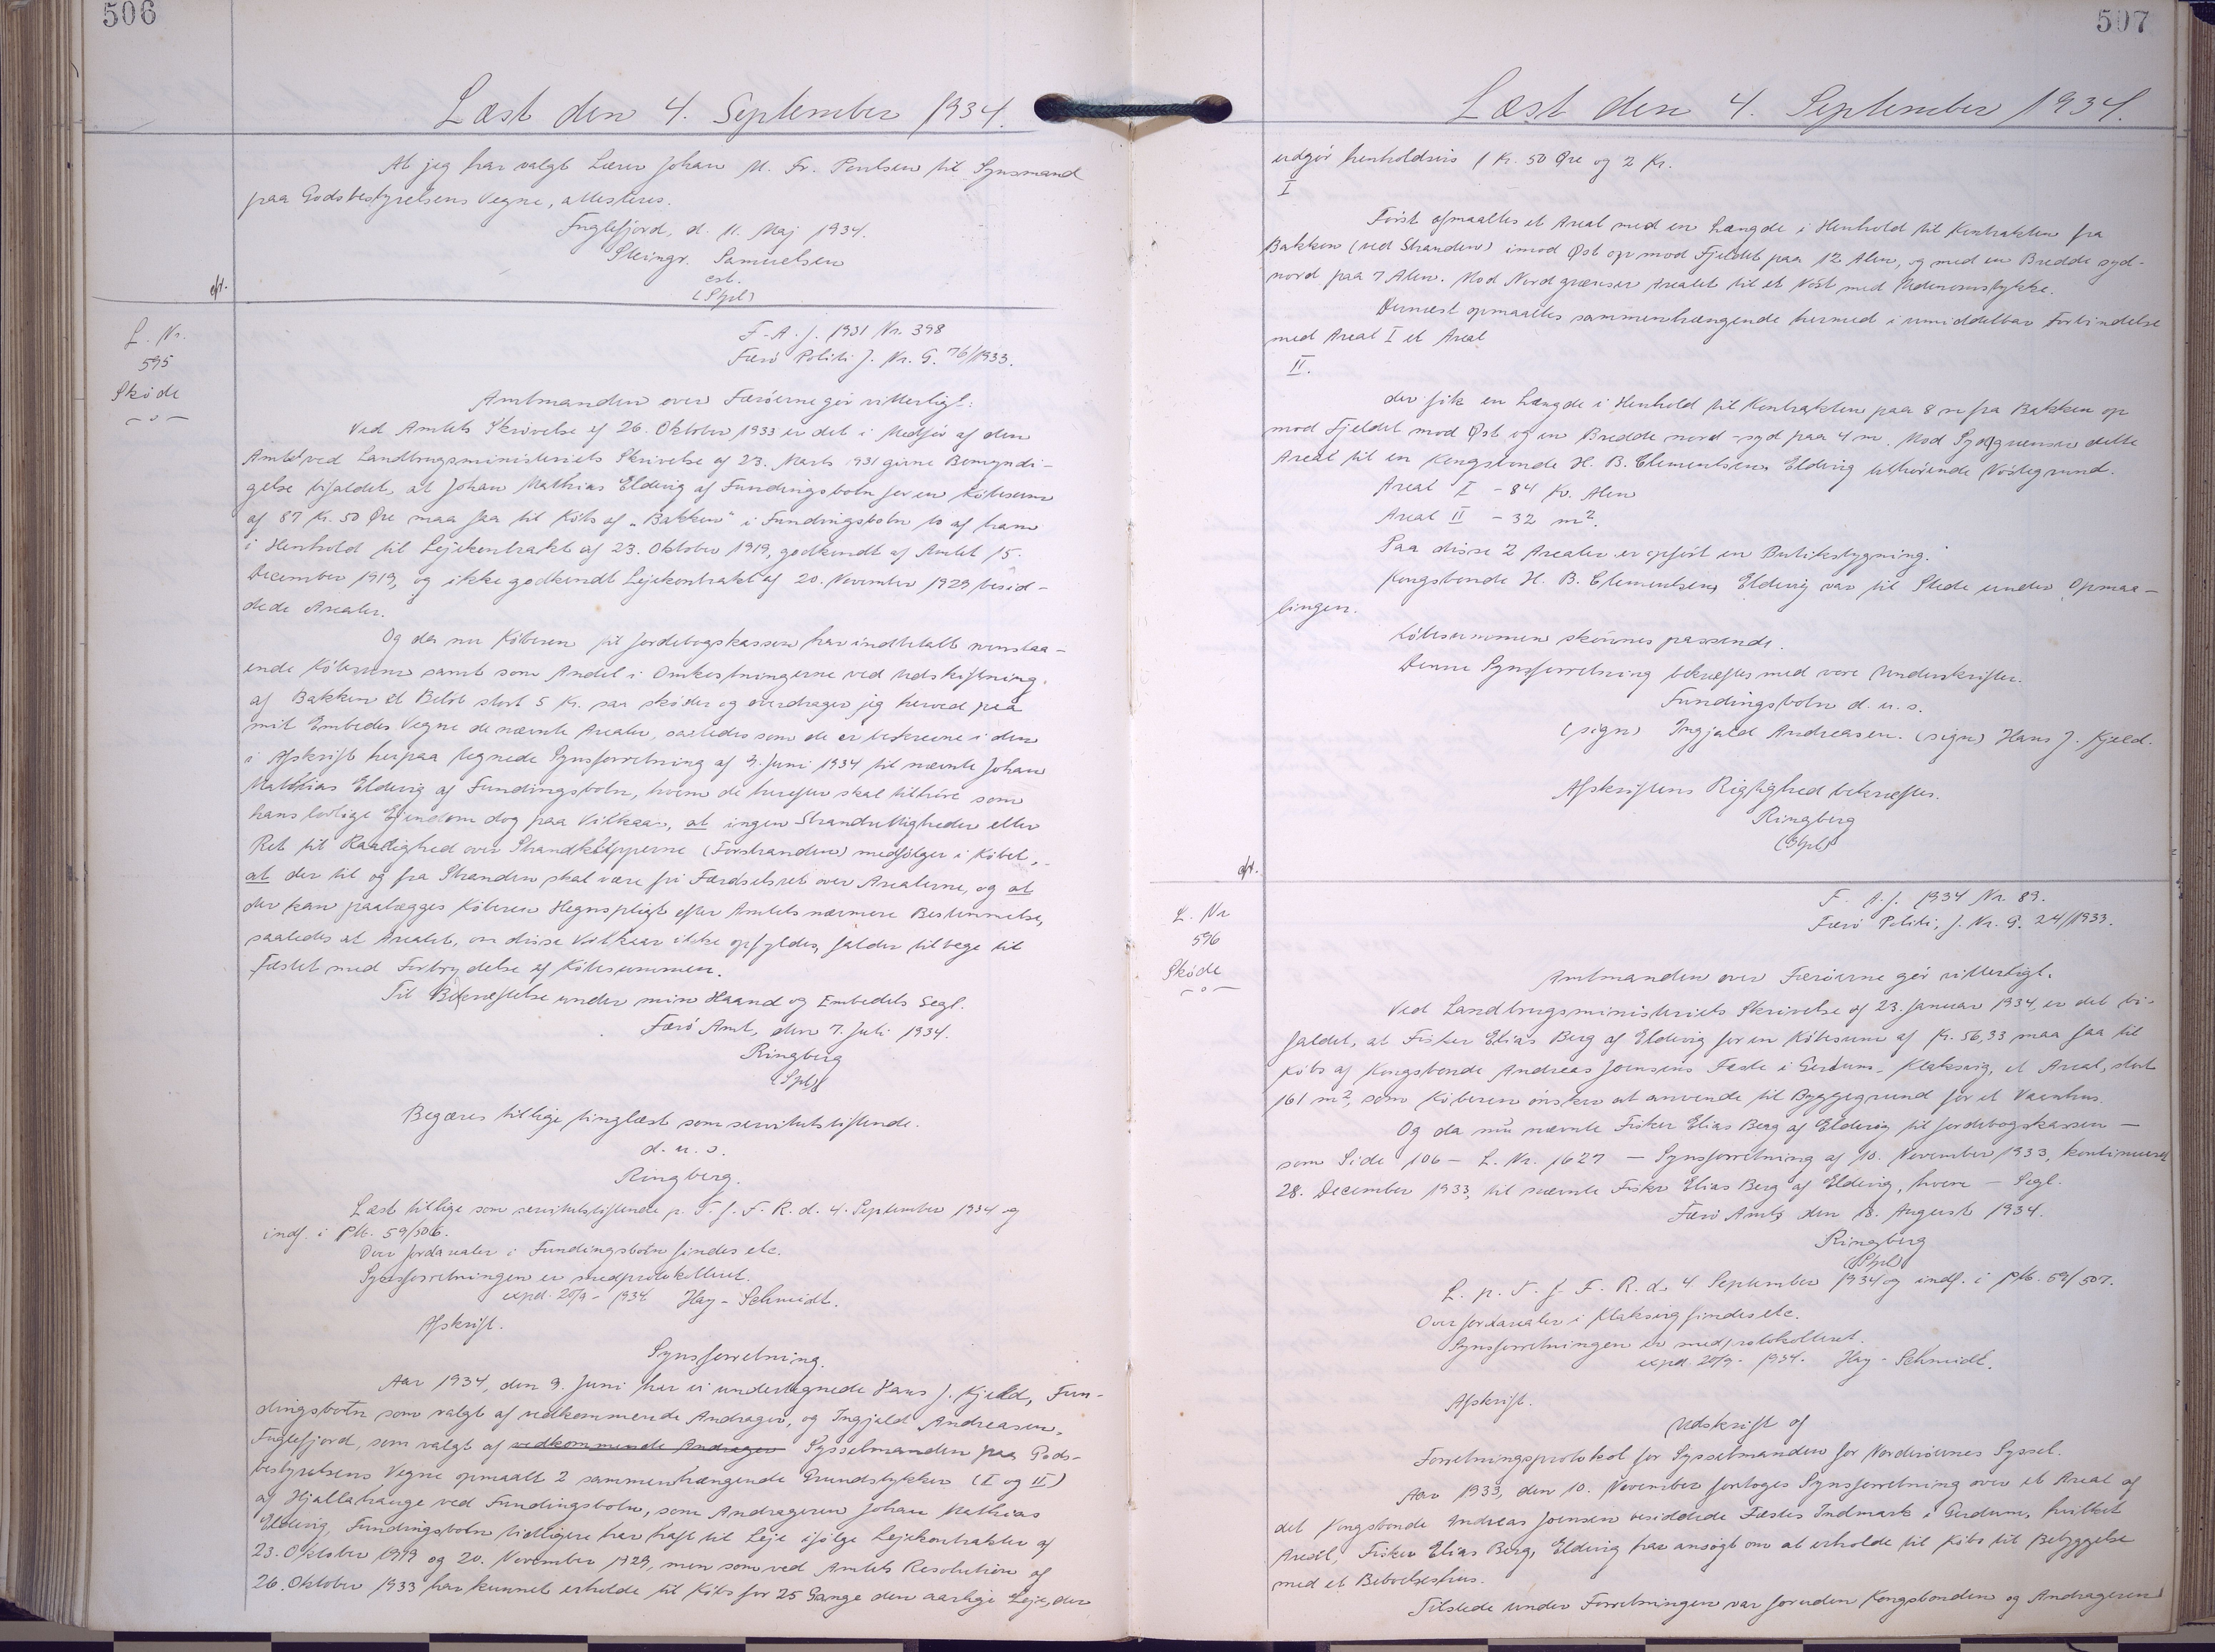 506
Læst den 4. September 1934.
At jeg har valgt Lærer Johan M. Fr. Poulsen til Synsmand
paa Godsbestyrelsens Vegne, attesteres.
Fuglefjord, d. 11. Maj 1934.
Steingr. Samuelsen
cst.
(Stpl)
L. Nr.
595
Skøde
F. A. J. 1931 Nr. 398
Færø Politi J. Nr. G. 76/1933.
Amtmanden over Færøerne gør vitterligt:
Ved Amtets Skrivelse af 26. Oktober 1933 er det i Medfør af den
Amtet ved Landbrugsministeriets Skrivelse af 23. Marts 1931 givne Bemyndi-
gelse bifaldet, at Johan Mathias Eldevig af Fundingsbotn for en Købesum
af 87 Kr. 50 Øre maa faa til Købs af "Bakken" i Fundingsbotn to af ham
i Henhold til Lejekontrakt af 23. Oktober 1919, godkendt af Amtet 15.
December 1919, og ikke godkendt Lejekontrakt af 20. November 1929 besid-
dede Arealer.
Og da nu Køberen til Jordebogskassen har indbetalt ovenstaa-
ende Købesum samt som Andel i Omkostningerne ved Udskiftning
af Bakken et Beløb stort 5 Kr. saa skøder og overdrager jeg herved paa
mit Embedes Vegne de nævnte Arealer, saaledes som de er beskrevne i den
i Afskrift herpaa tegnede Synsforretning af 9. Juni 1934 til nævnte Johan
Mathias Eldevig af Fundingsbotn, hvem de herefter skal tilhøre som
hans lovlige Ejendom dog paa Vilkaar, at ingen Strandrettigheder eller
Ret til Raadighed over Strandklipperne (Forstranden) medfølger i Købet,
at der til og fra Stranden skal være fri Færdselsret over Arealerne, og at
der kan paalægges Køberen Hegnspligt efter Amtets nærmere Bestemmelse,
saaledes at Arealet, om disse Vilkaar ikke opfyldes, falder tilbage til
Fæstet med Fortrydelse af Købesummen.
Til Bekræftelse under min Haand og Embedets Segl.
Færø Amt, den 7. Juli 1934.
Ringberg
(Stpl)
Begæres tillige tinglæst som servitutstiftende.
d. u. s.
Ringberg.
Læst tillige som servitutstiftende p. T. f. F. R. d. 4. September 1934 og
indf. i Ptk. 59/506.
Over Jordarealer i Fundingsbotn findes etc.
Synsforretningen er medprotokolleret.
expd. 20/9 - 1934. Hay-Schmidt.
Afskrift.
Synsforretning.
Aar 1934, den 9. Juni har vi undertegnede Hans J. Kjeld, Fun-
dingsbotn som valgt af vedkommende Andrager, og Ingjald Andreasen,
Fuglefjord, som valgt af vedkommende Andrager Sysselmanden paa Gods-
bestyrelsens Vegne opmaalt 2 sammenhængende Grundstykker (I og II)
af Hjallahauge ved Fundingsbotn, som Andrageren Johan Mathias
Eldevig, Fundingsbotn tidligere har haft til Leje ifølge Lejekontrakter af
23. Oktober 1919 og 20. November 1929, men som ved Amtets Resolution af
26. Oktober 1933 har kunnet erholde til Købs for 25 Gange den aarlige Leje, der
507
Læst den 4. September 1934.
udgør henholdsvis 1 Kr. 50 Øre og 2 Kr.
I
Først afmaaltes et Areal med en Længde i Henhold til Kontrakten fra
Bakken (ved Stranden) imod Øst op mod Fjeldet paa 12 Alen, og med en Bredde syd-
nord paa 7 Alen. Mod Nord grænser Arealet til et Nøst med
Dernæst opmaaltes sammenhængende hermed i umiddelbar Forbindelse
med Areal I et Areal
II.
der fik en Længde i Henhold til Kontrakten paa 8 m fra Bakken op
mod Fjeldet mod Øst og en Bredde nord-syd paa 4 m. Mod Syd grænser dette
Areal til en Kongsbonde H. B. Clementsen, Eldevig tilhørende Nøstegrund.
Areal I - 84 Kv. Alen
Areal II - 32 m².
Paa disse 2 Arealer er opført en Butiksbygning.
Kongsbonde H. B. Clementsen, Eldevig var til Stede under Opmaa-
lingen.
Købesummen skønnes passende.
Denne Synsforretning bekræftes med vore Underskrifter.
Fundingsbotn d. u. s.
(sign) Ingjald Andreasen. (sign) Hans J. Kjeld.
Afskriftens Rigtighed bekræftes.
Ringberg
(Stpl)
L. Nr
596
Skøde
F. A. J. 1934 Nr. 89.
Færø Politi, J. Nr. G. 24/1933.
Amtmanden over Færøerne gør vitterligt.
Ved Landbrugsministeriets Skrivelse af 23. Januar 1934, er det bi-
faldet, at Fisker Elias Berg af Eldevig for en Købesum af Kr. 56,33 maa faa til
Købs af Kongsbonde Andreas Joensens Fæste i Gerdum, Klaksvig, et Areal, stort
161 m², som Køberen ønsker at anvende til Byggegrund for et Vaanhus.
Og da nu nævnte Fisker Elias Berg af Eldevig til Jordebogskassen —
som Side 106 - L. Nr. 1627 — Synsforretning af 10. November 1933, kontinueret
28. December 1933, til nævnte Fisker Elias Berg af Eldevig, hvem — Segl.
Færø Amt, den 18. August 1934.
Ringberg
(Stpl)
L. p. T. f. F. R. d. 4 September 1934 og indf. i Ptk. 59/507.
Over Jordarealer i Klaksvig findes etc.
Synsforretningen er medprotokolleret.
expd. 20/9 - 1934. Hay-Schmidt.
Afskrift.
Udskrift af
Forretningsprotokol for Sysselmanden for Norderøernes Syssel.
Aar 1933, den 10. November foretoges Synsforretning over et Areal af
det Kongsbonde Andreas Joensen besiddede Fæstes Indmark i Gerdum, hvilket
Areal, Fisker Elias Berg, Eldevig har ansøgt om at erholde til Købs til Bebyggelse
med et Beboelseshus.
Tilstede under Forretningen var foruden Kongsbonden og Andrageren